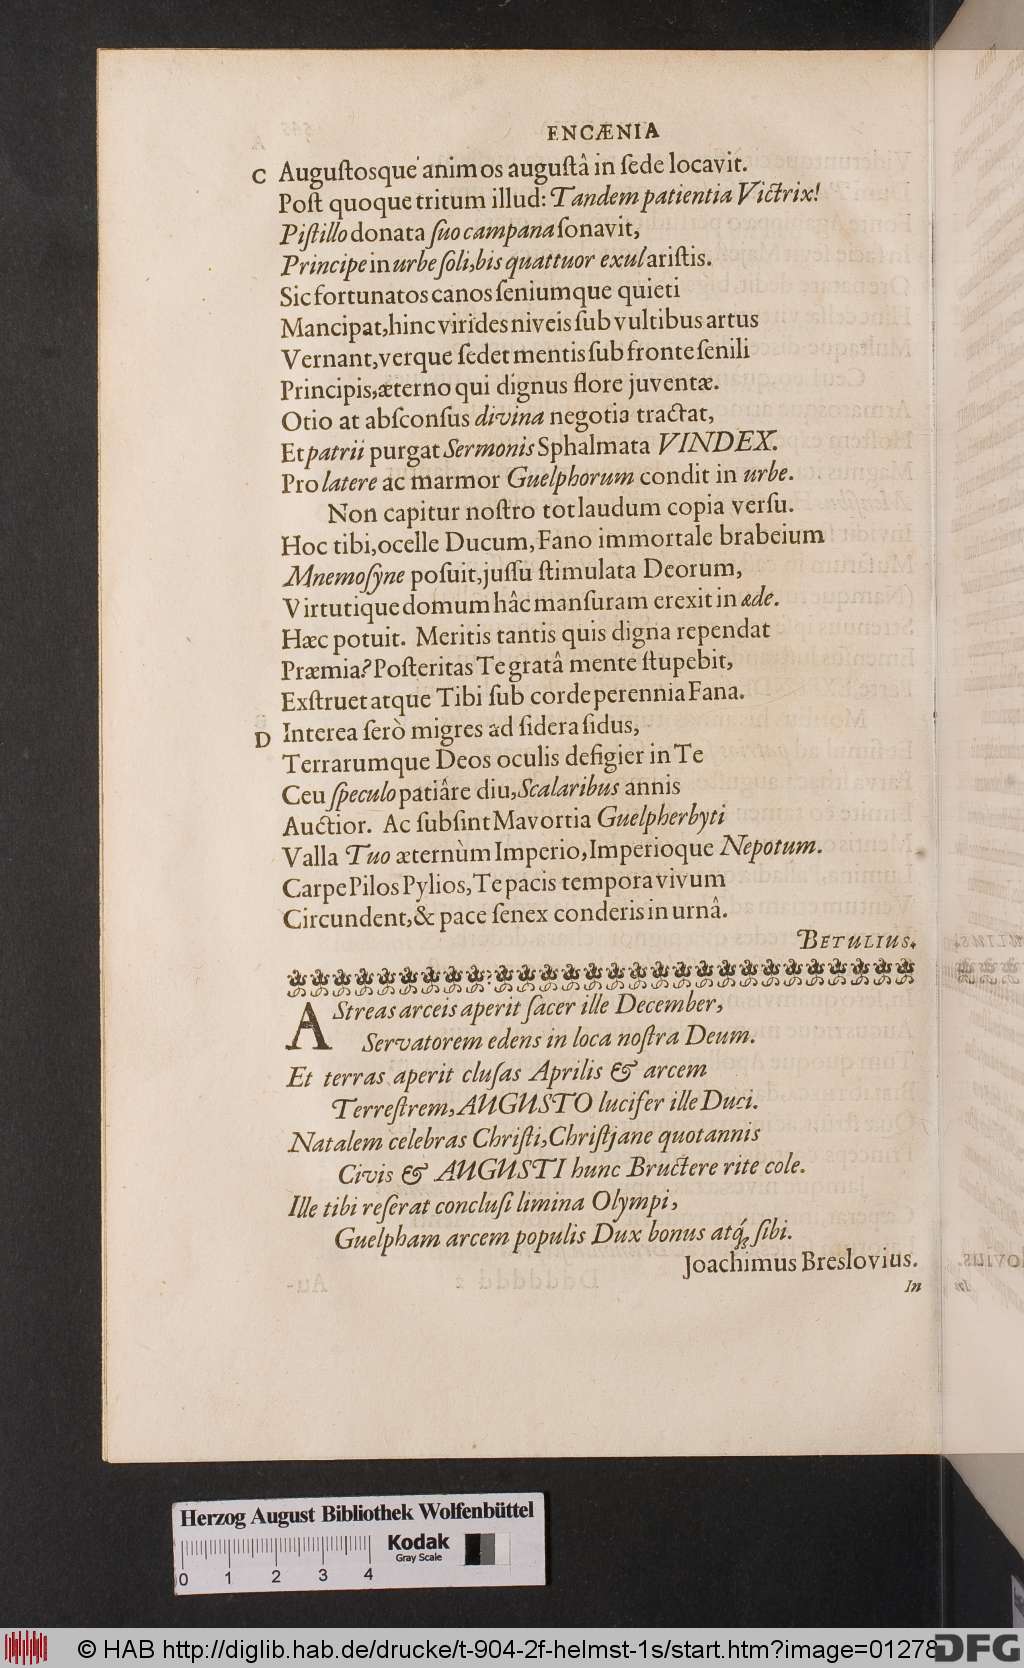 ENCÆNIA
C Auguſtosque animos auguſtâ in ſede locavit.
Poſt quoque tritum illud: Tandem patientia Victrix!
Piſtillo donata ſuo campana ſonavit,
Principe in urbe ſoli, bis quattuor exul ariſtis.
Sic fortunatos canos ſeniumque quieti
Mancipat, hinc virides niveis ſub vultibus artus
Vernant, verque ſedet mentis ſub fronte ſenili
Principis, æterno qui dignus flore juventæ.
Otio at abſconſus divina negotia tractat,
Et patrii purgat Sermonis Sphalmata VINDEX.
Pro latere ac marmor Guelphorum condit in urbe.
Non capitur noſtro tot laudum copia verſu.
Hoc tibi, ocelle Ducum, Fano immortale brabeium
Mnemoſyne poſuit, juſſu ſtimulata Deorum,
Virtutique domum hâc manſuram erexit in æde.
Hæc potuit. Meritis tantis quis digna rependat
Præmia? Poſteritas Te gratâ mente ſtupebit,
Exſtruet atque Tibi ſub corde perennia Fana.
D Interea ſerò migres ad ſidera ſidus,
Terrarumque Deos oculis defigier in Te
Ceu ſpeculo patiâre diu, Scalaribus annis
Auctior. Ac ſubſint Mavortia Guelpherbyti
Valla Tuo æternùm Imperio, Imperioque Nepotum.
Carpe Pilos Pylios, Te pacis tempora vivum
Circundent, & pace ſenex conderis in urnâ.
BETULIUS.
AStreas arceis aperit ſacer ille December,
Servatorem edens in loca noſtra Deum.
Et terras aperit cluſas Aprilis & arcem
Terreſtrem, AUGUSTO lucifer ille Duci.
Natalem celebras Chriſti, Chriſtjane quotannis
Civis & AUGUSTI hunc Bructere rite cole.
Ille tibi reſerat concluſi limina Olympi,
Guelpham arcem populis Dux bonus atq́ ſibi.
Joachimus Breslovius.
In
Herzog August Bibliothek Wolfenbüttel
Kodak
Gray Scale
0 1 2 3 4
© HAB http://diglib.hab.de/drucke/t-904-2f-helmst-1s/start.htm?image=01278
DFG